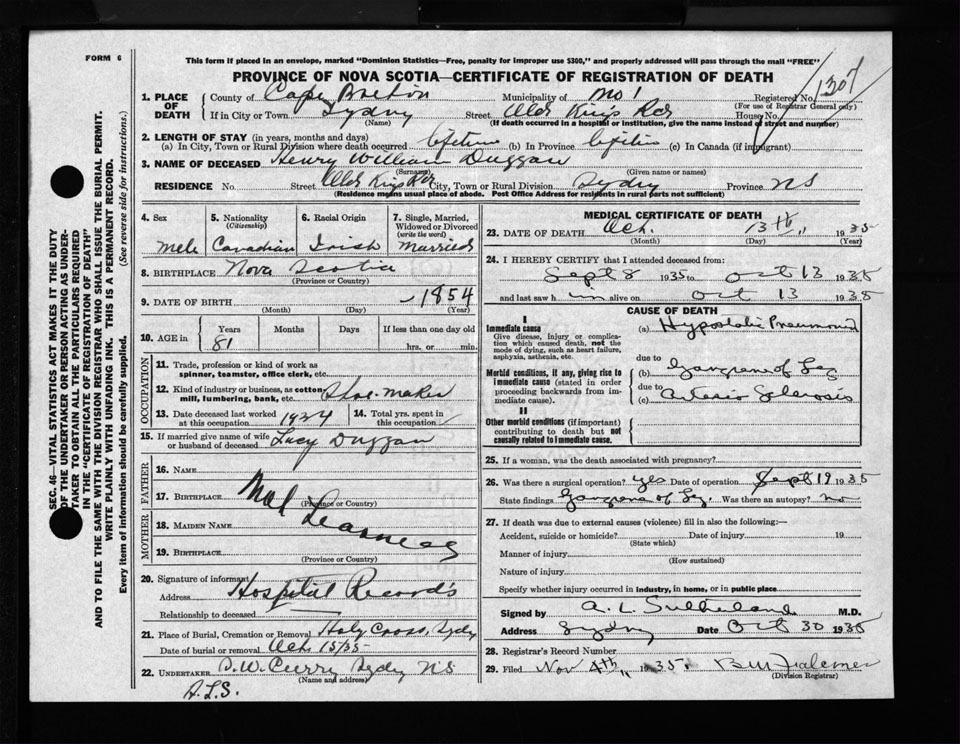 FORM 6
This form if placed in an envelope, marked "Dominion Statistics—Free, penalty for improper use $300," and properly addressed will pass through the mail "FREE"
PROVINCE OF NOVA SCOTIA—CERTIFICATE OF REGISTRATION OF DEATH
1. PLACE OF DEATH
County of Cape Breton Municipality of No 1 Registered No. 1307
(For use of Registrar General only)
If in City or Town Sydney Street Old Kings Rd House No.
(Name) (If death occurred in a hospital or institution, give the name instead of street and number)
2. LENGTH OF STAY (in years, months and days)
(a) In City, Town or Rural Division where death occurred lifetime (b) In Province lifetime (c) In Canada (if immigrant)
3. NAME OF DECEASED Henry William Duggan
(Surname) (Given name or names)
RESIDENCE No. Street Old Kings Rd City, Town or Rural Division Sydney Province NS
(Residence means usual place of abode. Post Office Address for residents in rural parts not sufficient)
4. Sex
Male
5. Nationality (Citizenship)
Canadian
6. Racial Origin
Irish
7. Single, Married, Widowed or Divorced (write the word)
Married
8. BIRTHPLACE Nova Scotia
(Province or Country)
9. DATE OF BIRTH — 1854
(Month) (Day) (Year)
10. AGE in Years Months Days If less than one day old
81 hrs. or min.
OCCUPATION
11. Trade, profession or kind of work as spinner, teamster, office clerk, etc.
12. Kind of industry or business, as cotton mill, lumbering, bank, etc. Shoe maker
13. Date deceased last worked at this occupation 1934
14. Total yrs. spent in this occupation
15. If married give name of wife or husband of deceased Lucy Duggan
FATHER
16. NAME
17. BIRTHPLACE
(Province or Country)
MOTHER
18. MAIDEN NAME
19. BIRTHPLACE
(Province or Country)
20. Signature of informant
Address Hospital Record's
Relationship to deceased
21. Place of Burial, Cremation or Removal Holy Cross, Sydney
Date of burial or removal Oct. 15/35
22. UNDERTAKER D.W. Curry Sydney NS
(Name and address)
A.L.S.
MEDICAL CERTIFICATE OF DEATH
23. DATE OF DEATH Oct. 13th, 1935
(Month) (Day) (Year)
24. I HEREBY CERTIFY that I attended deceased from:
Sept 8 1935 to Oct 13 1935
and last saw him alive on Oct 13 1935
CAUSE OF DEATH
I
Immediate cause
Give disease, injury or complication which caused death, not the mode of dying, such as heart failure, asphyxia, asthenia, etc.
(a) Hypostatic Pneumonia
due to
Morbid conditions, if any, giving rise to immediate cause (stated in order proceeding backwards from immediate cause).
(b) Gangrene of Leg
due to
(c) Arterio Sclerosis
II
Other morbid conditions (if important) contributing to death but not causally related to immediate cause.
25. If a woman, was the death associated with pregnancy?
26. Was there a surgical operation? yes Date of operation Sept 19 1935
State findings Gangrene of Leg. Was there an autopsy? no
27. If death was due to external causes (violence) fill in also the following:—
Accident, suicide or homicide? Date of injury 19
(State which)
Manner of injury
(How sustained)
Nature of injury
Specify whether injury occurred in industry, in home, or in public place
Signed by A. L. Sutherland M.D.
Address Sydney Date Oct 30 1935
28. Registrar's Record Number
29. Filed Nov 4th, 1935.
(Division Registrar)
SEC. 46—VITAL STATISTICS ACT MAKES IT THE DUTY
OF THE UNDERTAKER OR PERSON ACTING AS UNDER-
TAKER TO OBTAIN ALL THE PARTICULARS REQUIRED
IN THE "CERTIFICATE OF REGISTRATION OF DEATH"
AND TO FILE THE SAME WITH THE DIVISION REGISTRAR WHO SHALL ISSUE THE BURIAL PERMIT.
WRITE PLAINLY WITH UNFADING INK. THIS IS A PERMANENT RECORD.
Every item of information should be carefully supplied. (See reverse side for instructions.)